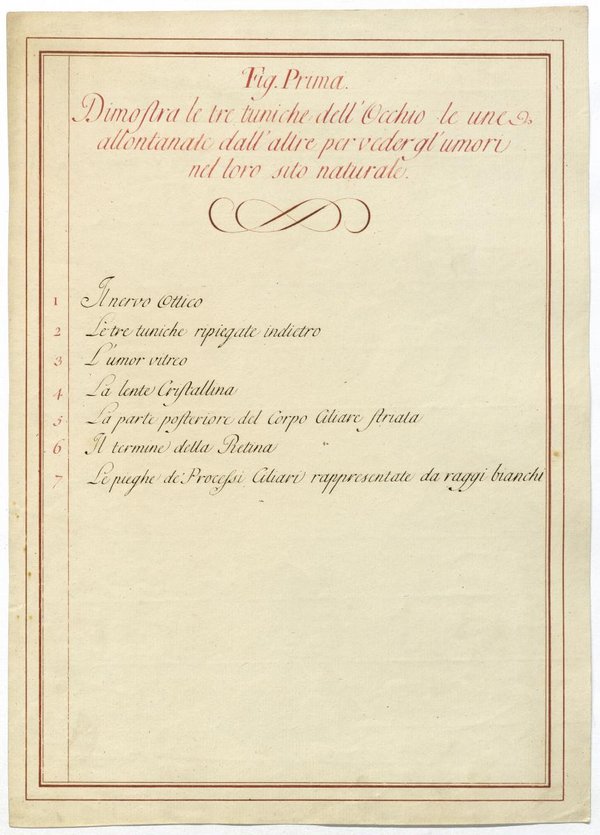 Fig. Prima.
Dimoſtra le tre tuniche dell'Occhio le une
allontanate dall'altre per veder gl'umori
nel loro sito naturale.
1 Il nervo Ottico
2 Le tre tuniche ripiegate indietro
3 L'umor vitreo
4 La lente Criſtallina
5 La parte poſteriore del Corpo Ciliare ſtriata
6 Il termine della Retina
7 Le pieghe de' Proceſsi Ciliari rappresentate da raggi bianchi